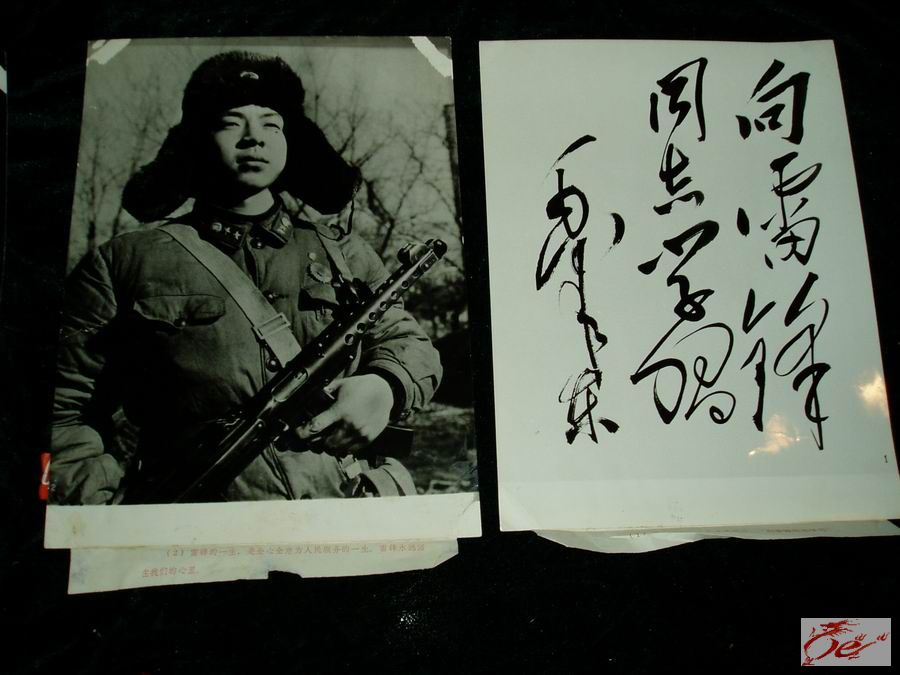 向雷锋
同志学习
毛泽东
(2) 雷锋的一生，是全心全意为人民服务的一生。雷锋永远活
在我们的心里。
1